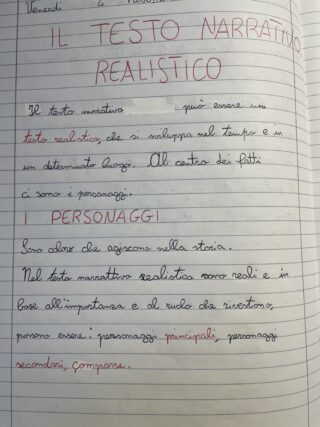 Venerdì 4
IL TESTO NARRATIVO
REALISTICO
Il testo narrativo può essere un
testo realistico, che si sviluppa nel tempo e in
un determinato luogo. Al centro dei fatti
ci sono i personaggi.
I PERSONAGGI
Sono coloro che agiscono nella storia.
Nel testo narrattivo realistica sono reali e in
base all'importanza e al ruolo che rivestono,
possono essere: personaggi principali, personaggi
secondari, comparse.